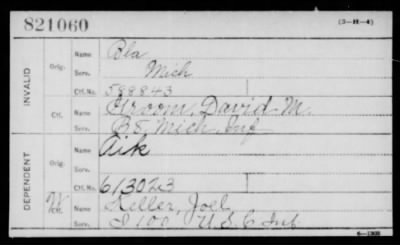 821060
(3-H-4)
INVALID
Orig.
Name Bla
Serv. Mich
Ctf. No. 588843
Ctf.
Name Groom, David M.
Serv. B 5 Mich. Inf
DEPENDENT
Orig.
Name Aik
Serv.
Ctf. No. 613023
W Ctf.
Name Keller, Joel
Serv. I 100 U.S.C. Inf